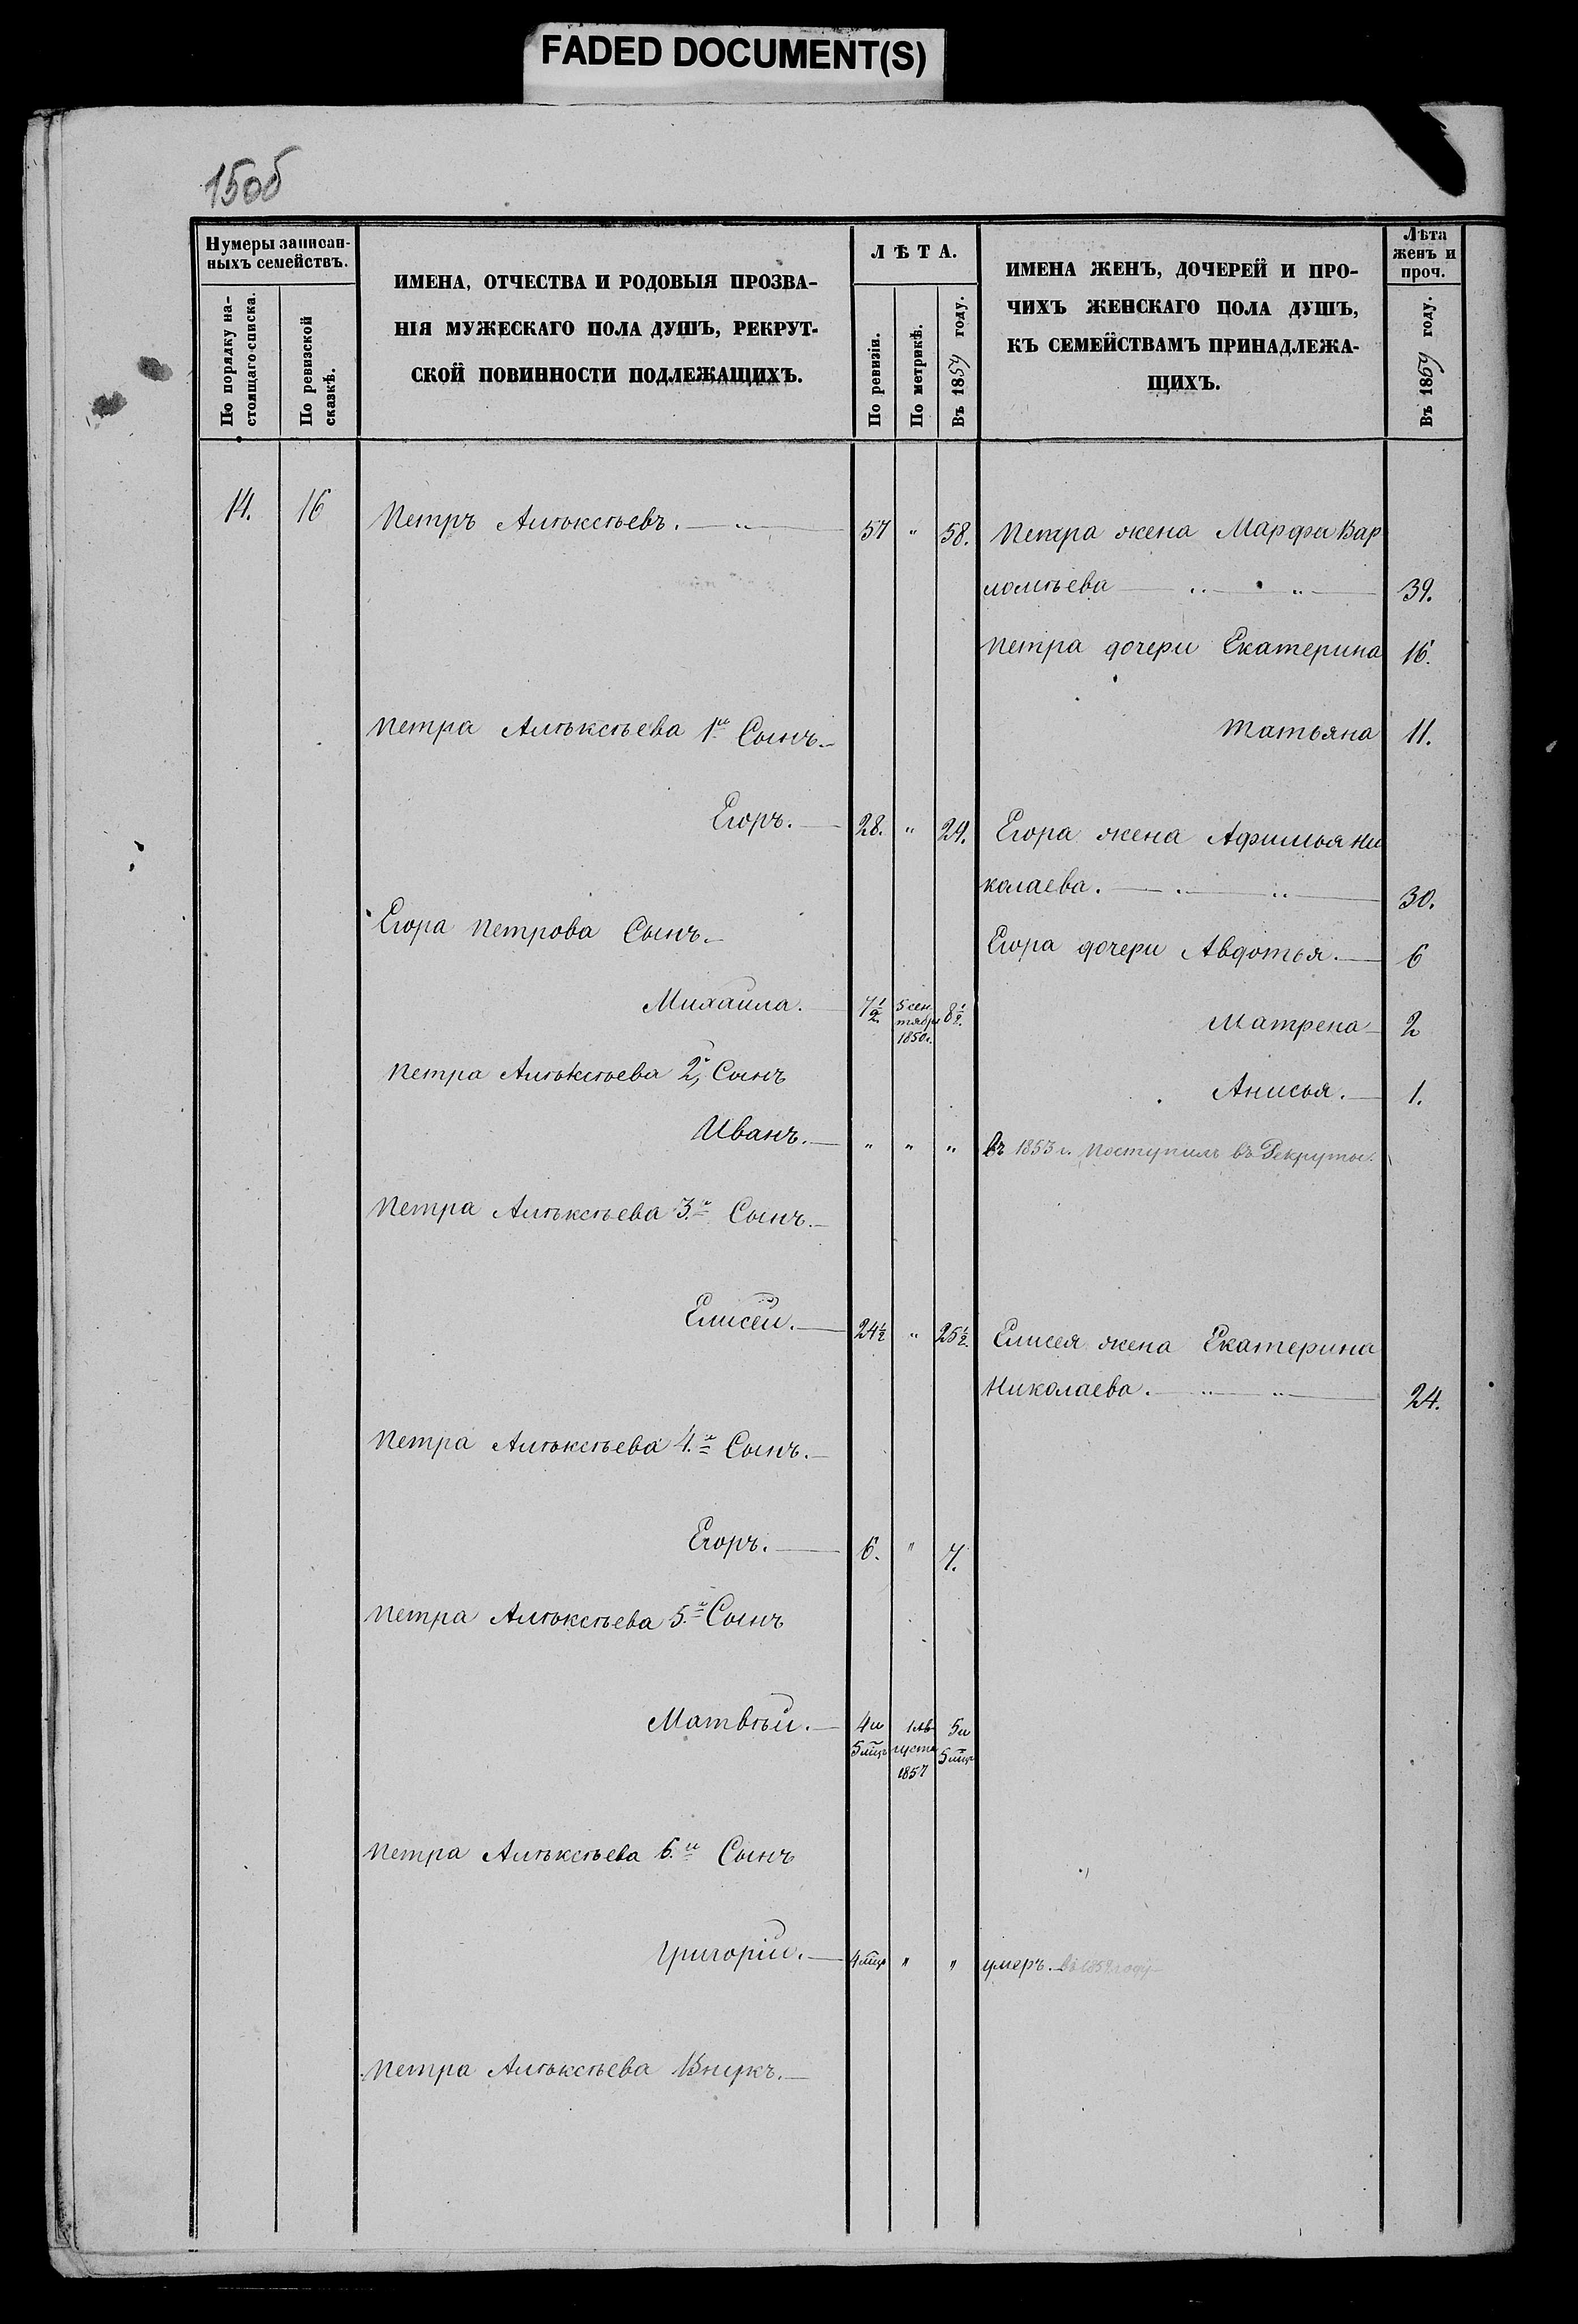 FADED DOCUMENT(S)
150б
Нумеры записан-
ныхъ семействъ.
По порядку на-
стоящаго списка.
По ревизской
сказкѣ.
ИМЕНА, ОТЧЕСТВА И РОДОВЫЯ ПРОЗВА-
НІЯ МУЖЕСКАГО ПОЛА ДУШЪ, РЕКРУТ-
СКОЙ ПОВИННОСТИ ПОДЛЕЖАЩИХЪ.
ЛѢТА.
По ревизіи.
По метрикѣ.
Въ 1859 году.
ИМЕНА ЖЕНЪ, ДОЧЕРЕЙ И ПРО-
ЧИХЪ ЖЕНСКАГО ПОЛА ДУШЪ,
КЪ СЕМЕЙСТВАМЪ ПРИНАДЛЕЖА-
ЩИХЪ.
Лѣта
женъ и
проч.
Въ 1859 году.
14. 16 Петръ Алѣксѣевъ. — " — 57 " 58. Петра жена Марфа Вар
ломѣева — " — " — 39.
Петра дочери Екатерина 16.
Петра Алѣксѣева 1й Сынъ. — Татьяна 11.
Егоръ. — 28. " 29. Егора жена Афимья Ни
колаева. — " — 30.
Егора Петрова Сынъ. — Егора дочери Авдотья. — 6
Михаила. — 7½ 5 сен
тября
1850г. 8½. Матрена — 2
Петра Алѣксѣева 2й Сынъ Анисья. — 1.
Иванъ. — " " " въ 1853 г. поступилъ въ Рекруты.
Петра Алѣксѣева 3.й Сынъ. —
Елисей. — 24½ " 25½. Елисея жена Екатерина
Николаева. — " — " — 24.
Петра Алѣксѣева 4.й Сынъ. —
Егоръ. — 6. " 7.
Петра Алѣксѣева 5.й Сынъ
Матвѣй. — 4и 1 Ав 5и
5 мцъ густа 5 мцъ
1857
Петра Алѣксѣева 6.й Сынъ
Григорій. — 4 мцъ " " умеръ. — въ 1859 году —
Петра Алѣксѣева Внукъ. —